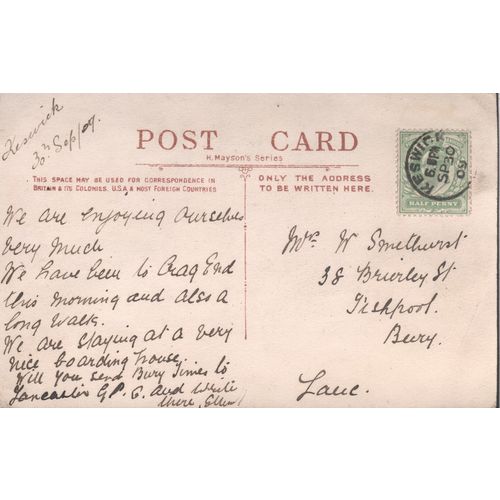 Keswick
30th Sep/09.
POST CARD
H. Mayson's Series
THIS SPACE MAY BE USED FOR CORRESPONDENCE IN
BRITAIN & ITS COLONIES, U.S.A. & MOST FOREIGN COUNTRIES
ONLY THE ADDRESS
TO BE WRITTEN HERE.
KESWICK
6 PM
SP 30
09
HALF PENNY
We are enjoying ourselves
very much
We have been to Crag End
this morning and also a
long walk.
We are staying at a very
nice boarding house.
Will you send Bury Times to
Lancaster G.P.O. and write
there,
Mrs W Smethurst
38 Brierley St
Fishpool.
Bury.
Lanc.